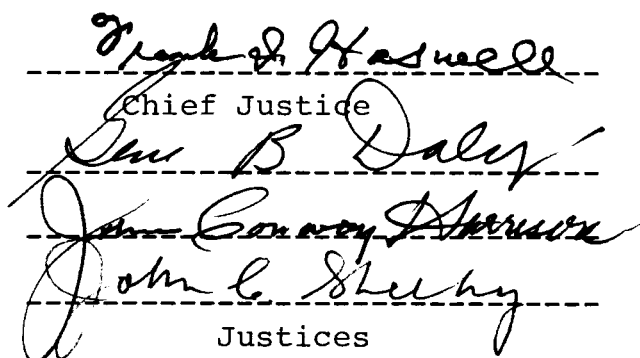 Frank I. Haswell
Chief Justice
Gene B Daly
John Conway Harrison
John C. Sheehy
Justices